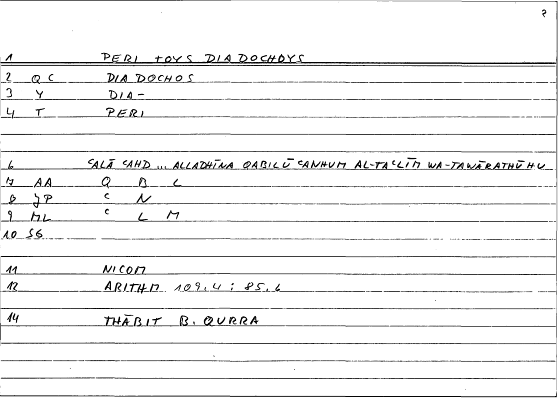 ?
1 PERI TOYS DIADOCHOYS
2 QC DIADOCHOS
3 Y DIA-
4 T PERI
6 CALĀ CAHD ... ALLADHĪNA QABILŪ CANHUM AL-TACLĪM WA-TAWĀRATHŪHU
7 AA Q B L
8 JP C N
9 ML C L M
10 SG
11 NICOM
12 ARITHM 109.4 : 85.6
14 THĀBIT B. QURRA